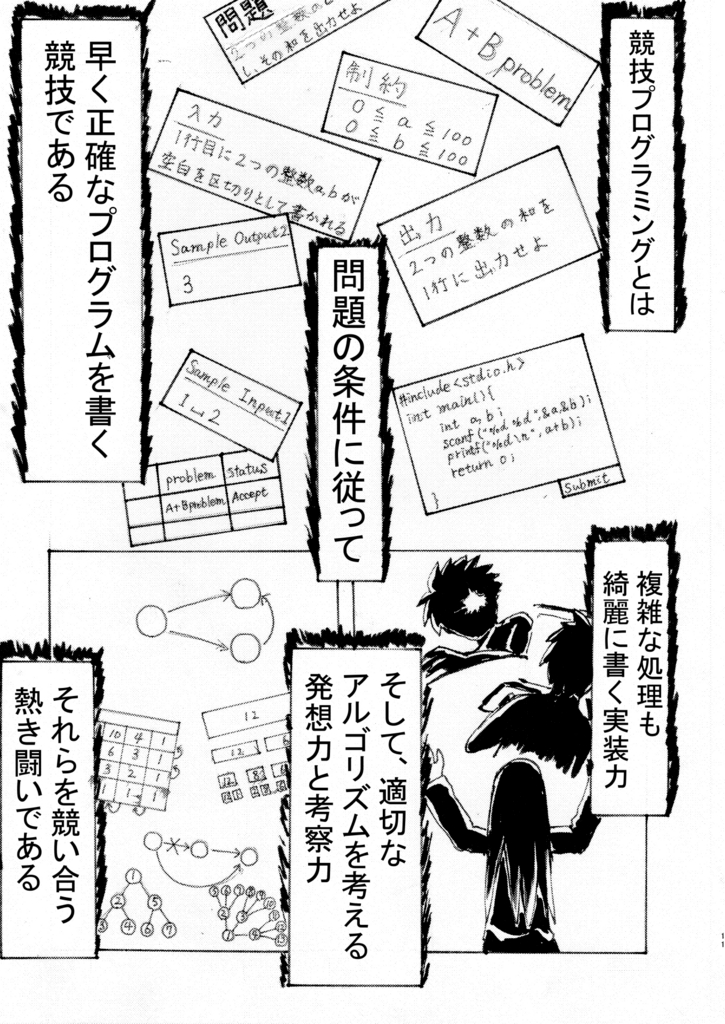 競技プログラミングとは
A+B problem
問題
2つの整数の
し、その和を出力せよ
制約
0 ≦ a ≦ 100
0 ≦ b ≦ 100
入力
1行目に2つの整数a,bが
空白を区切りとして書かれる
出力
2つの整数の和を
1行に出力せよ
Sample Output2
3
Sample Input1
1␣2
#include<stdio.h>
int main(){
int a,b;
scanf("%d %d",&a,&b);
printf("%d\n",a+b);
return 0;
}
Submit
problem status
A+Bproblem Accept
問題の条件に従って
早く正確なプログラムを書く
競技である
複雑な処理も
綺麗に書く実装力
そして、適切な
アルゴリズムを考える
発想力と考察力
12
12
12 8
10 4 1
6 3 1
3 2 1
1 1 1
1
2 5
3 4 6 7
それらを競い合う
熱き闘いである
11